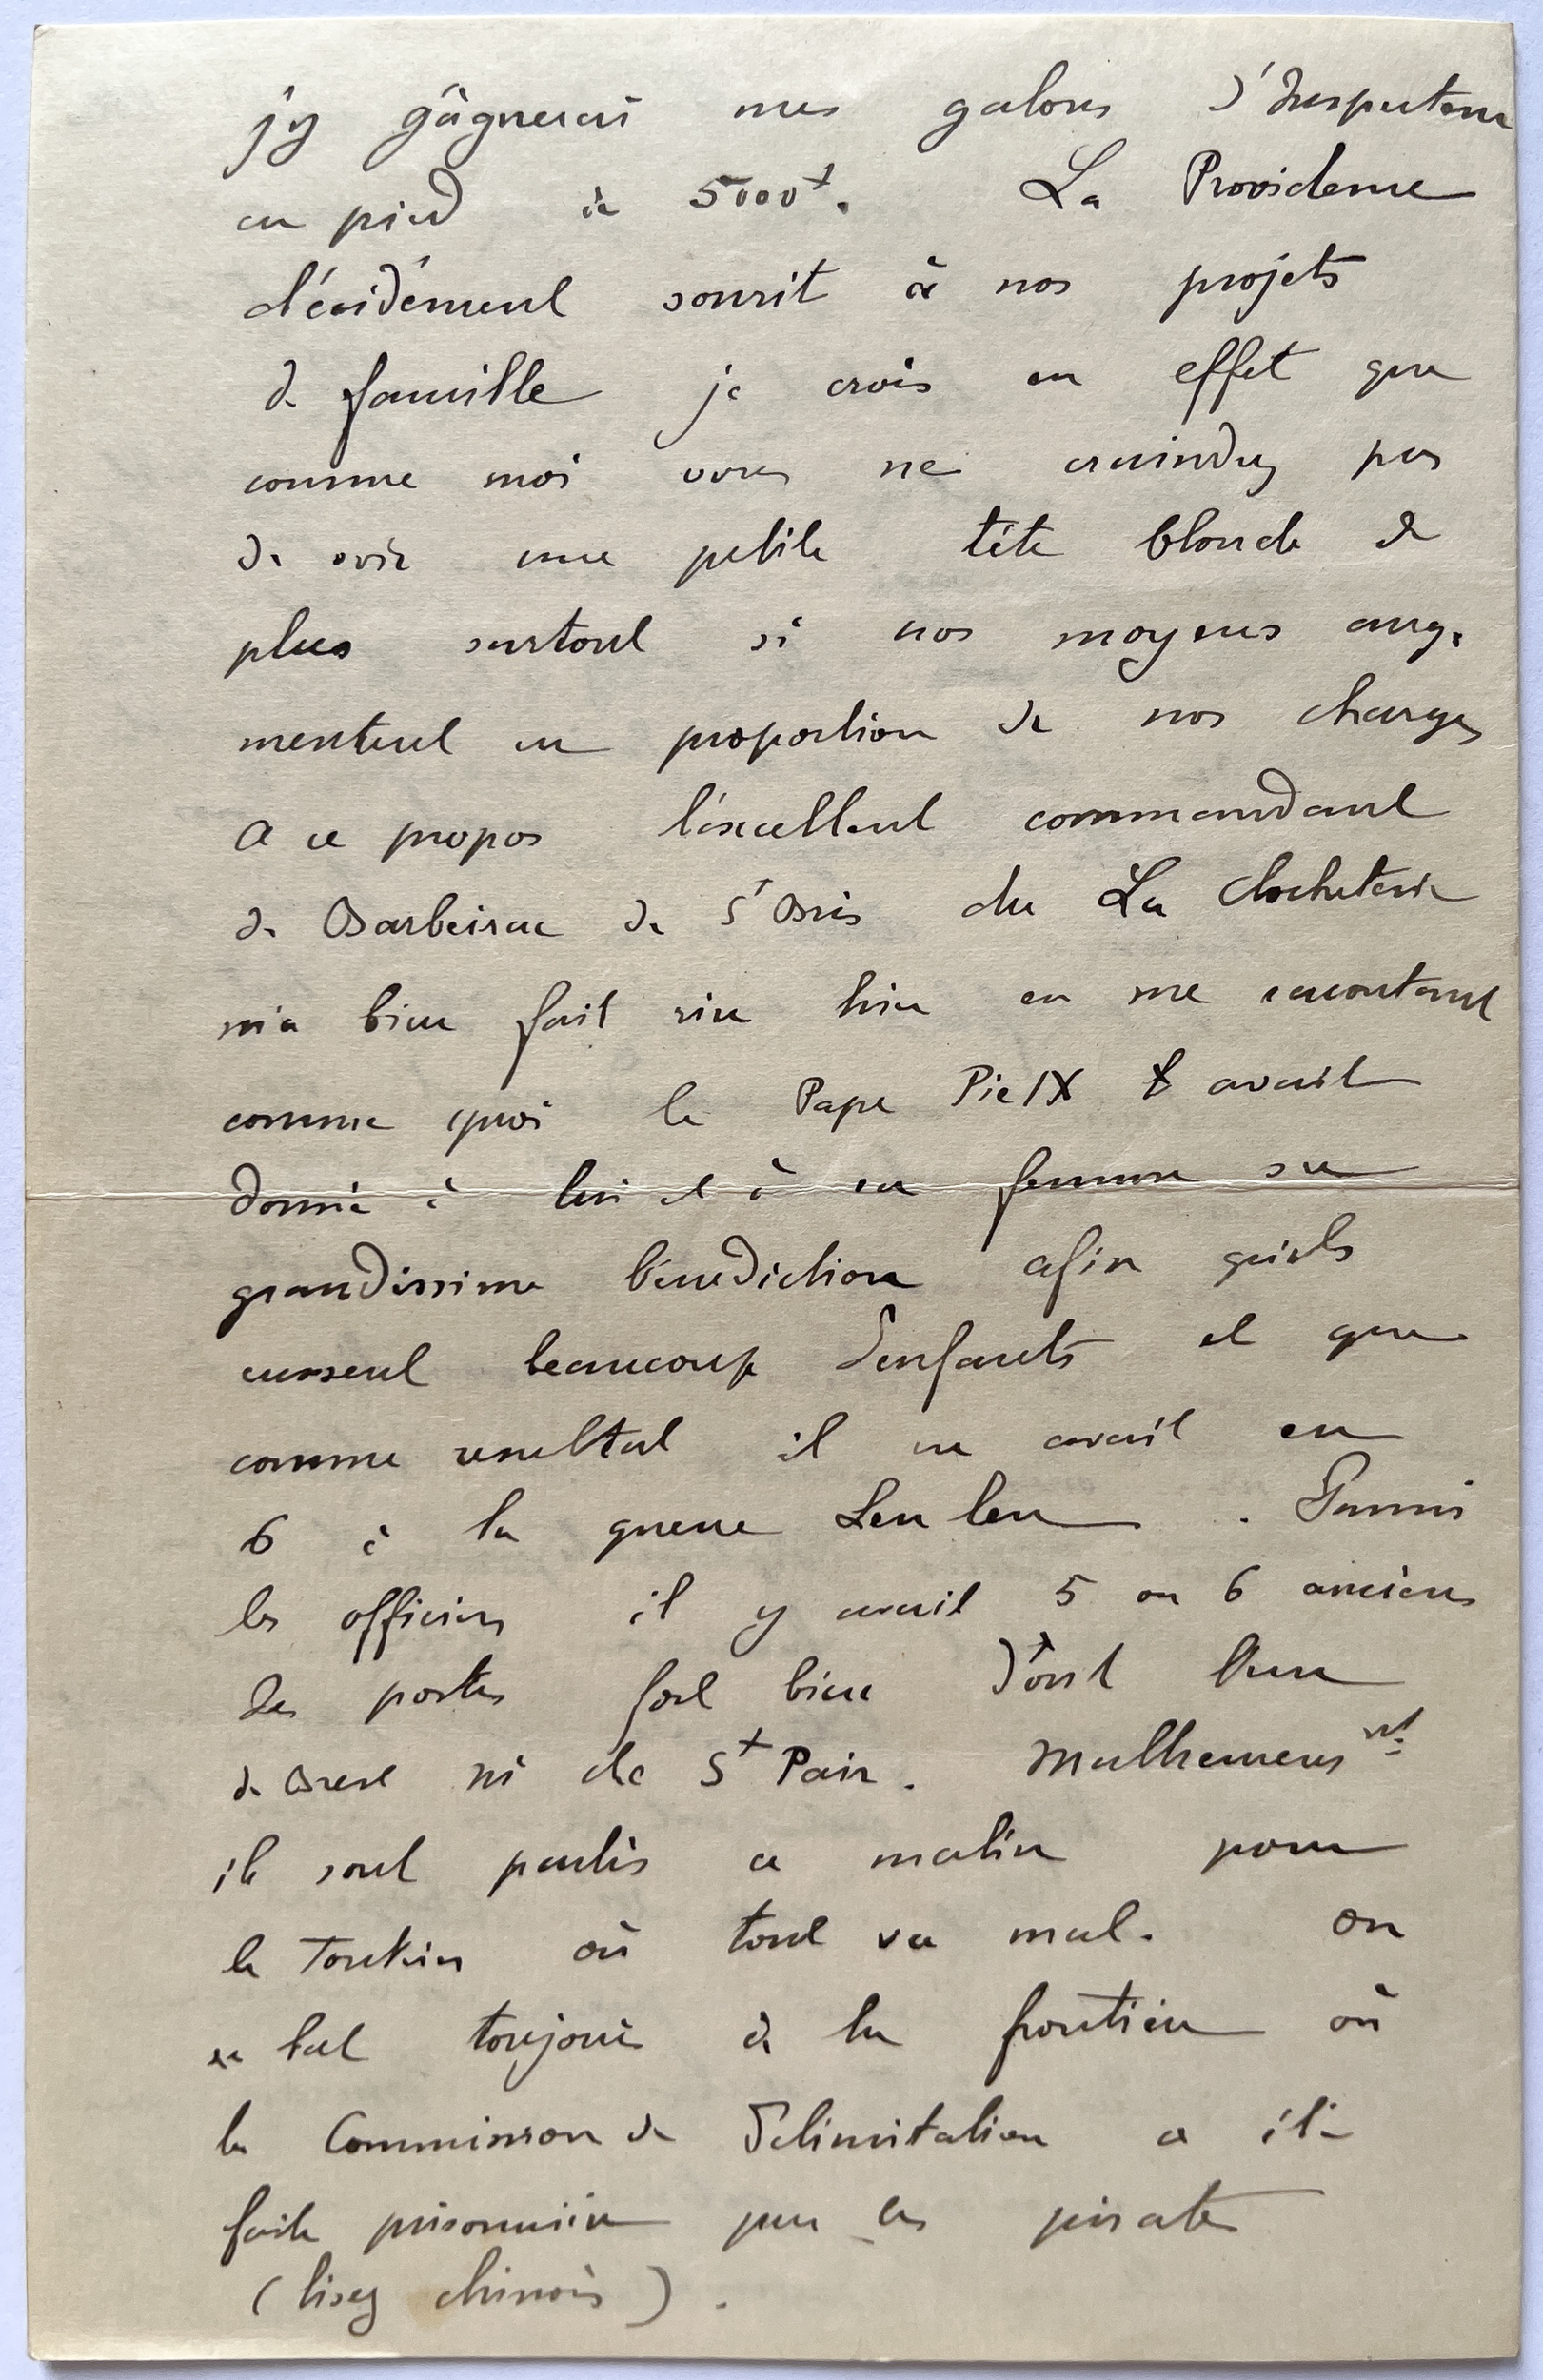 j'y gâgnerai mes galons d'Inspecteur
en pied à 5000f. La Providence
décidément sourit à nos projets
de famille je crois en effet que
comme moi vous ne craindrez pas
de voir une petite tête blonde de
plus surtout si nos moyens aug-
mentent en proportion de nos charges
A ce propos l'excellent commandant
de Barbeirac de St du La Clocheterie
m'a bien fait rire hier en me racontant
comme quoi le Pape Pie IX avait
donné à lui et à sa femme sa
grandissime bénediction afin qu'ils
eussent beaucoup d'enfants et que
comme resultat il en avait eu
6 à la queue Leu leu. Parmi
les officiers il y avait 5 ou 6 anciens
des postes fort bien dont l'un
de Brest ni de St Pair. Malheureusnt
ils sont partis ce matin pour
le Tonkin où tout va mal. On
se bat toujours à la frontière où
la Commission de Délimitation a été
faite prisonnière par les pirates
(lisez chinois).